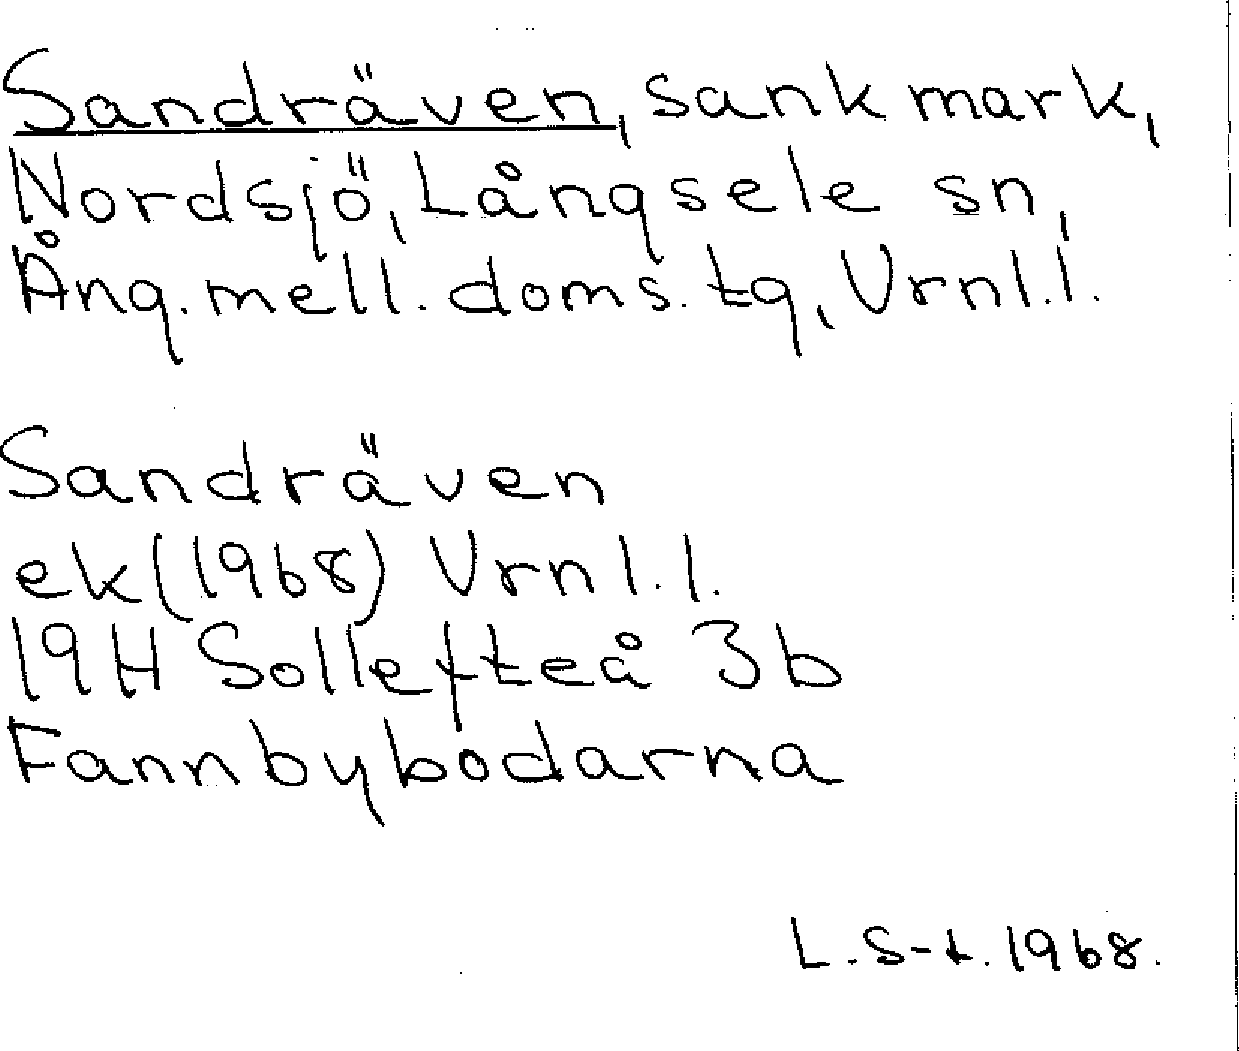 Sandräven, sank mark,
Nordsjö, Långsele sn,
Ång. mell. doms. tg, Vrnl. l.
Sandräven
ek (1968) Vrnl. l.
19H Sollefteå 3b
Fannbybodarna
L. S-t. 1968.